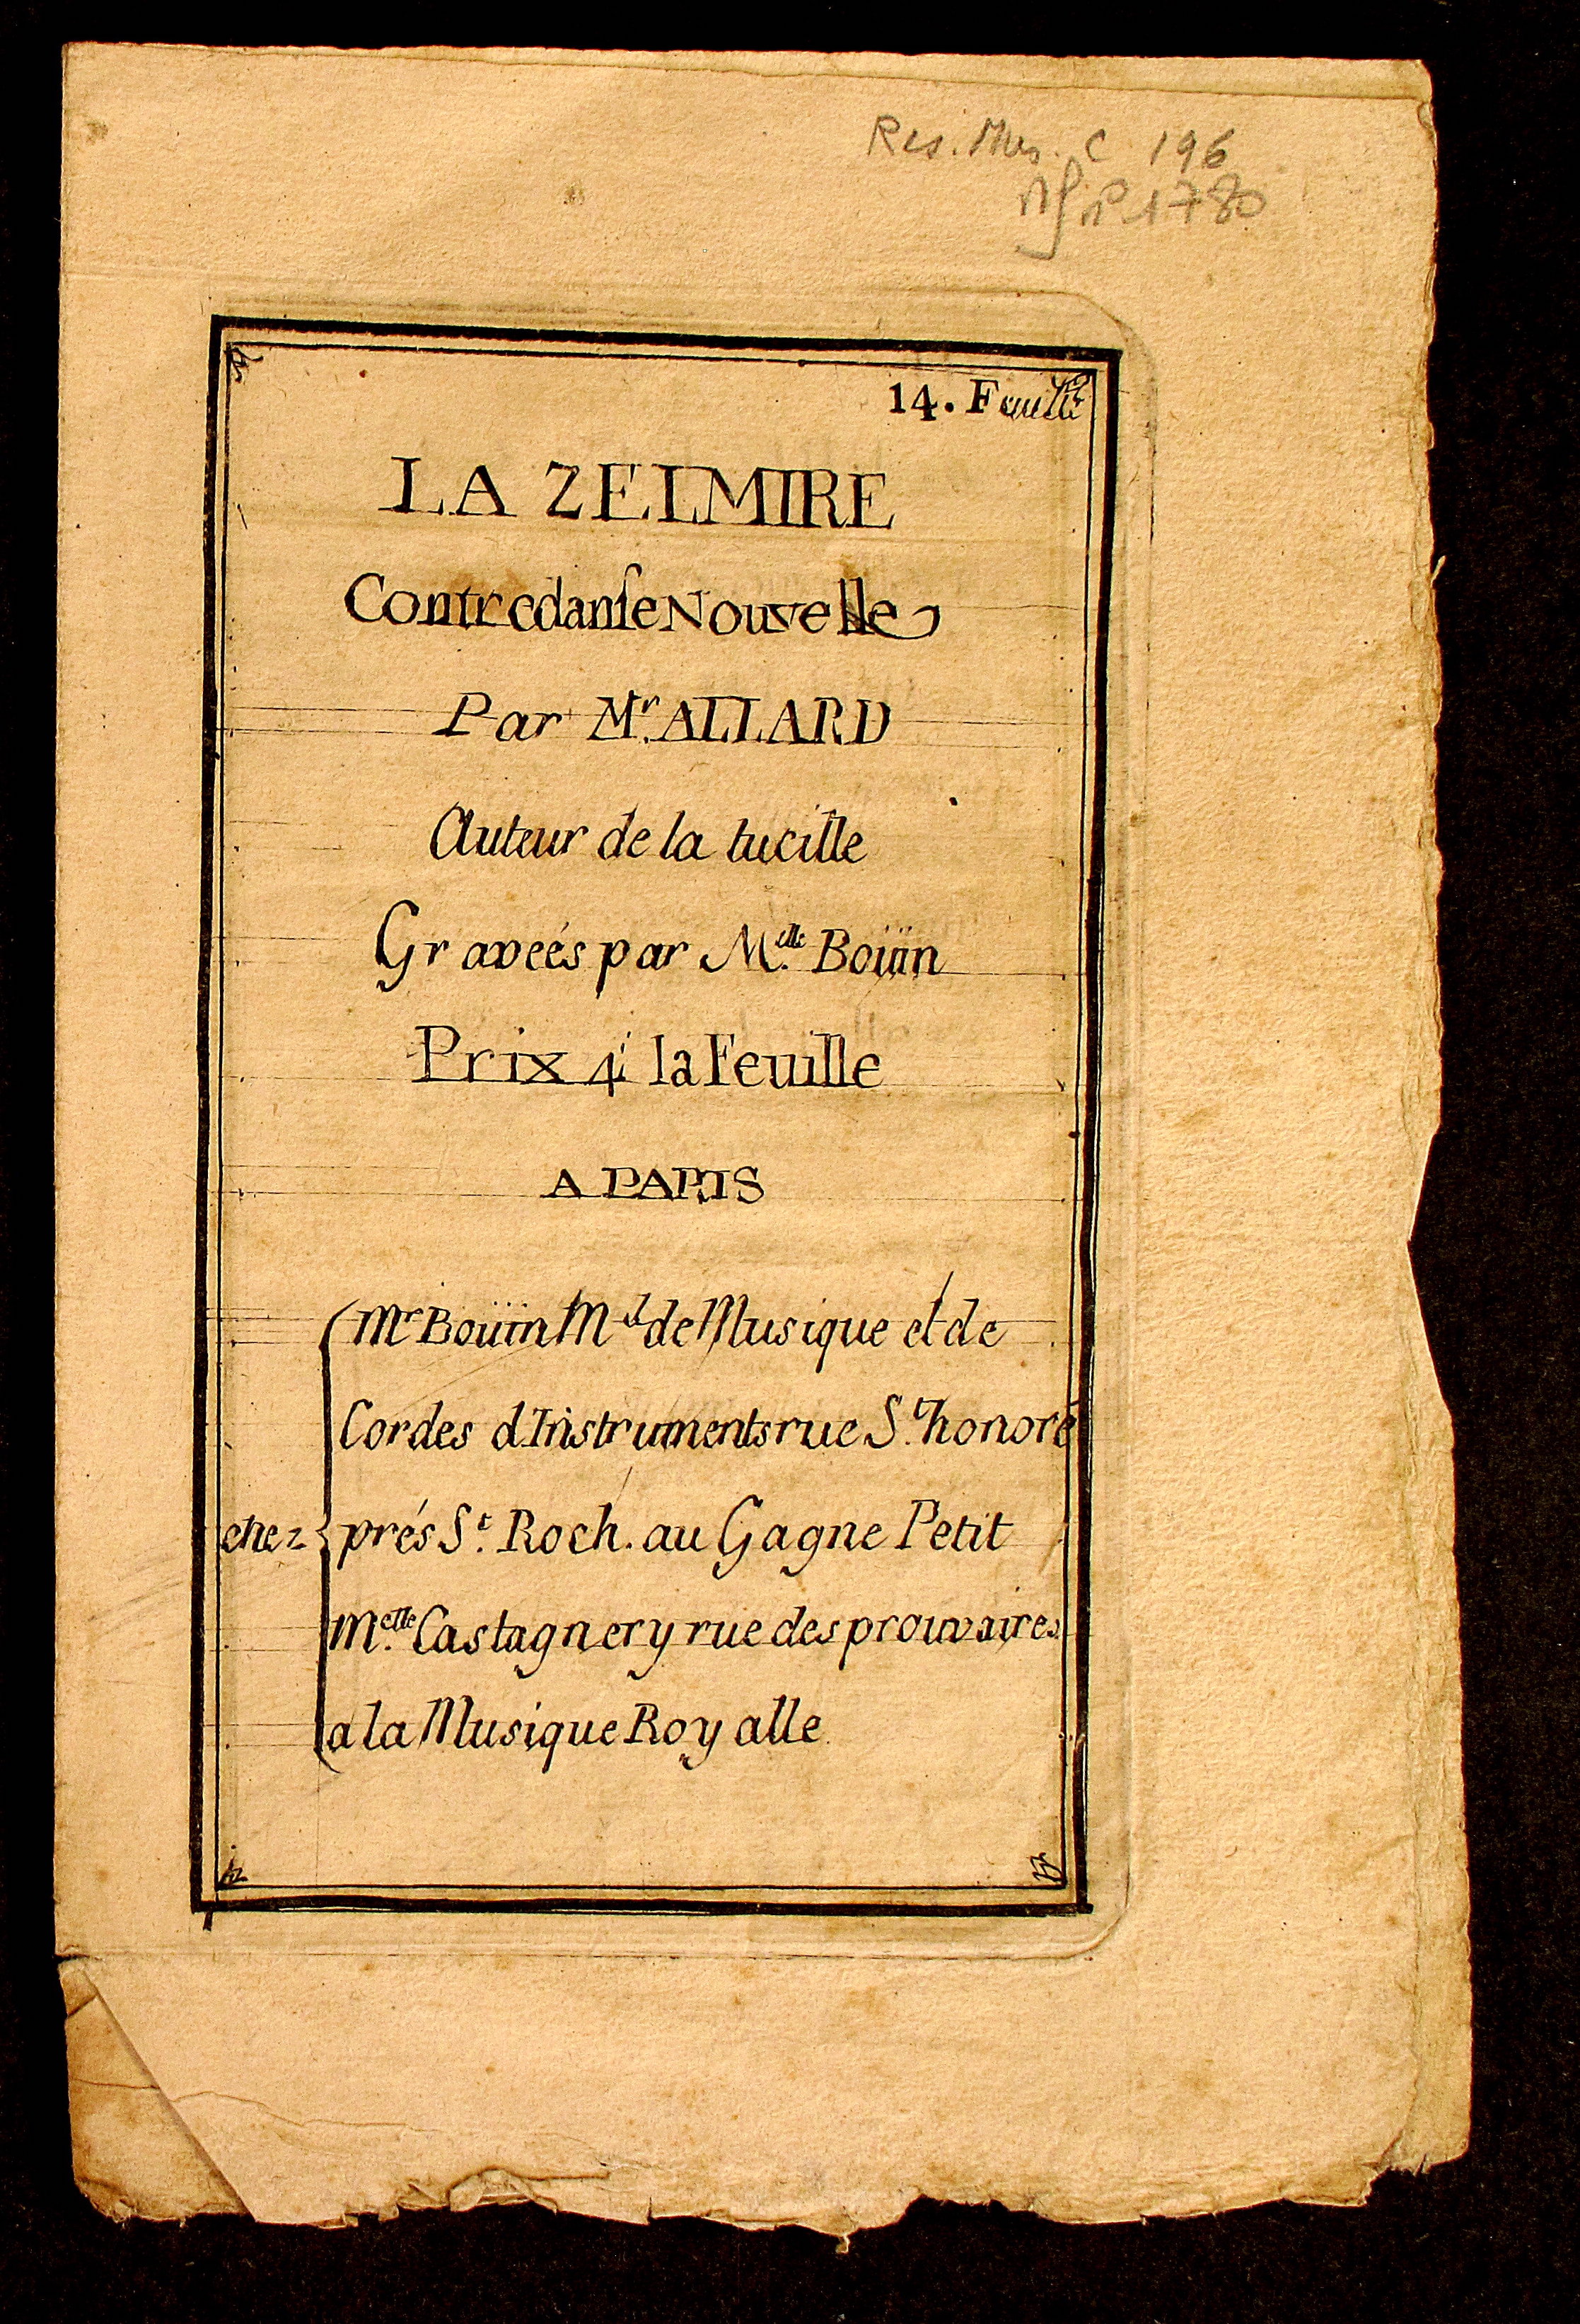 Res. Mus. C 196
1780
14. Feuille
LA ZELMIRE
Contredanſe Nouvelle
Par Mr. ALLARD
Auteur de la Lucille
Graveés par Melle. Boüin
Prix 4s la Feuille
A PARIS
Mr Boüin Md de Musique et de
Cordes d'Instruments rue St. honoré
chez prés St. Roch. au Gagne Petit
Melle. Castagnery rue des prouvaires
a la Musique Royalle.